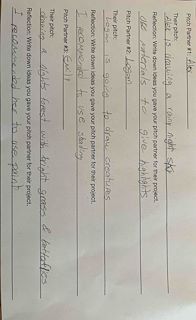 Pitch Partner #1: Alex
Their pitch:
Alex is drawing a rainy night
Reflection: Write down ideas you gave your pitch partner for their project.
use materials to give highlights
Pitch Partner #2: Logan
Their pitch:
Logan is going to draw creatures
Reflection: Write down ideas you gave your pitch partner for their project.
I recommended to use shading
Pitch Partner #3: Emily
Their pitch:
a forest with bright grass & butterflies
Reflection: Write down ideas you gave your pitch partner for their project.
I recommended her to use paint